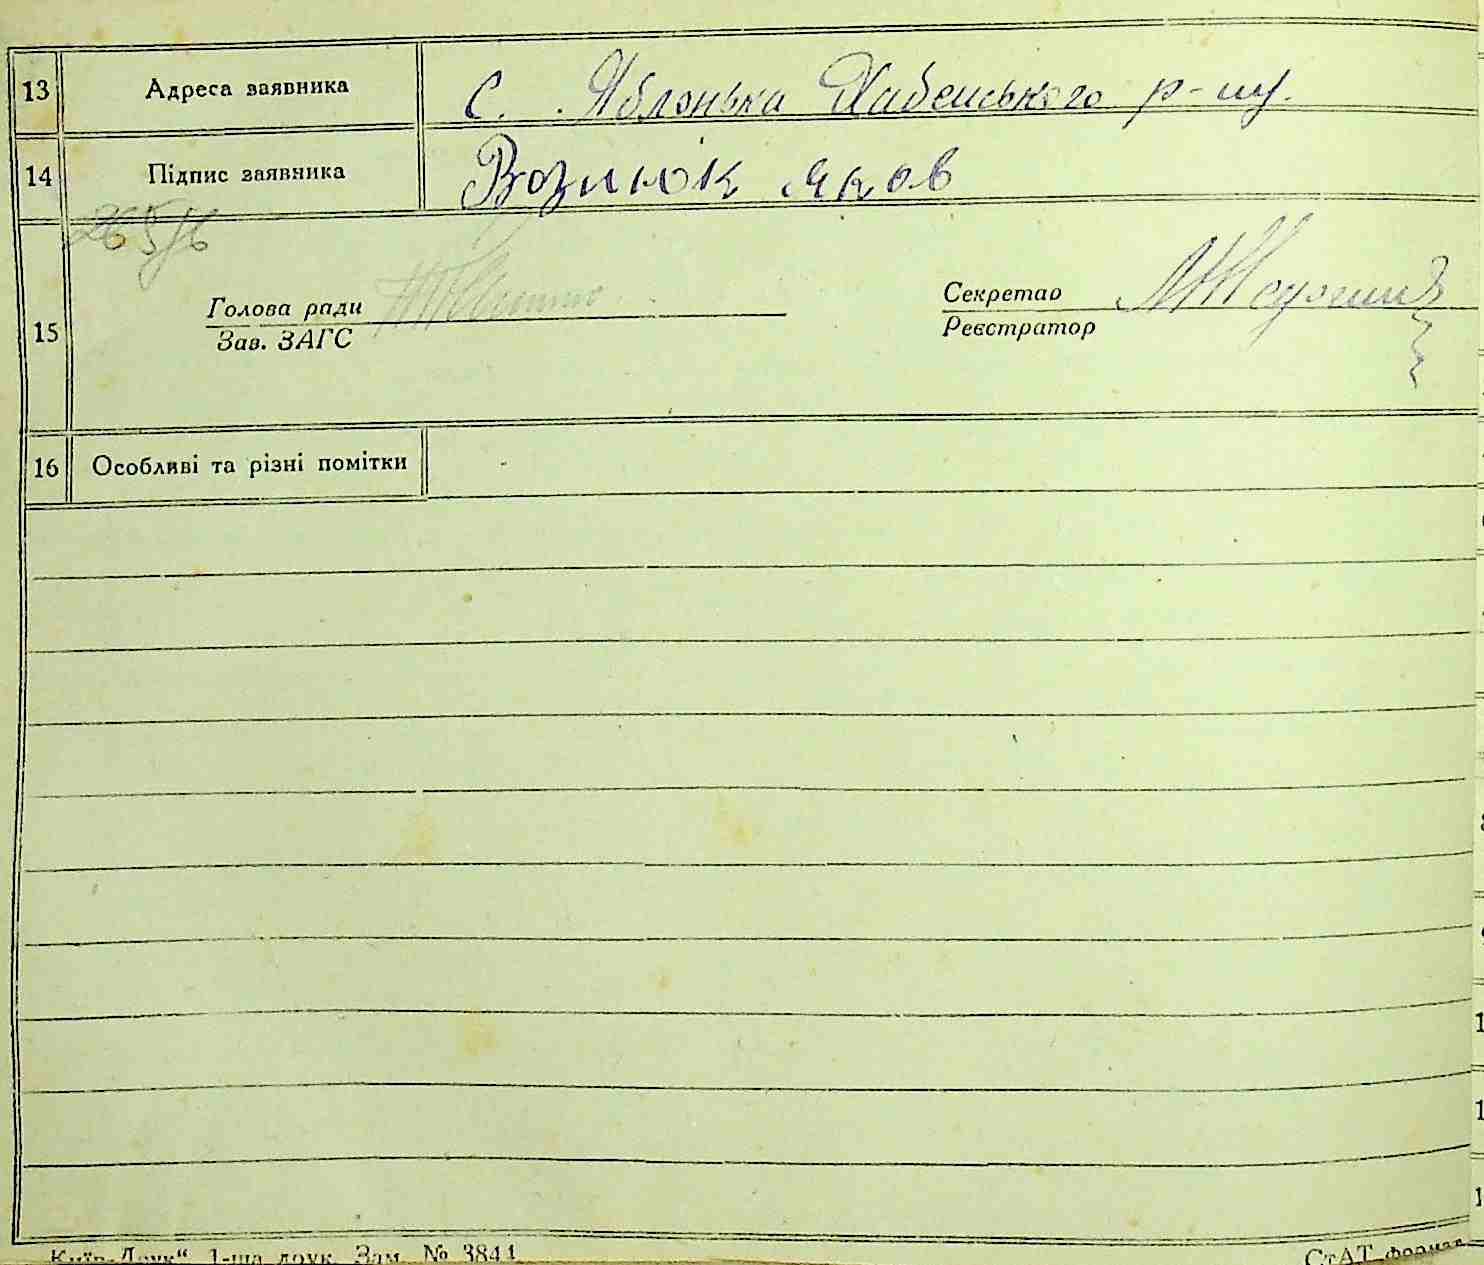 13 Адреса заявника с. Яблонька Хабенського р-ну.
14 Підпис заявника Вознюк яков
Голова ради Секретар
15
Зав. ЗАГС Реєстратор
16 Особливі та різні помітки
Київ-Друк“ 1-ша друк. Зам. № 3844 СтАТ формат